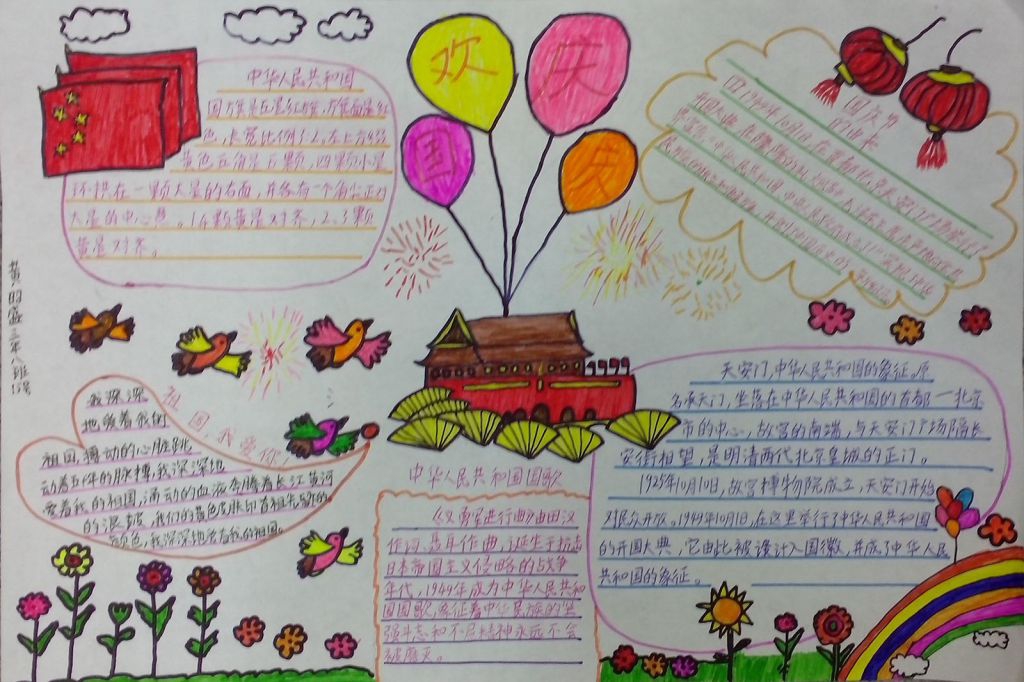 欢
庆
国
庆
中华人民共和国
国旗是五星红旗,旗面是红
色,长宽比例3:2。左上方4级
黄色五角星五颗,四颗小星
环拱在一颗大星的右面,并各有一个角尖正对
大星的中心点。1、4颗黄星对齐,2、3颗
黄星对齐。
国庆节
的由来
黄明盛三年八班15号
祖国,我爱你!
我深深
地爱着我的
祖国,搏动的心脏跳
动着五千年的脉搏,我深深地
爱着我的祖国,涌动的血液奔腾着长江黄河
的浪波,我们的黄色皮肤印着祖先留的
颜色,我深深地爱着我的祖国。
中华人民共和国国歌
《义勇军进行曲》由田汉
作词、聂耳作曲,诞生于抗击
日本帝国主义侵略的战争
年代,1949年成为中华人民共和
国国歌,象征着中华民族的坚
强斗志和不屈精神永远不会
被磨灭。
天安门,中华人民共和国的象征。原
名承天门,坐落在中华人民共和国的首都—北京
市的中心,故宫的南端,与天安门广场隔长
安街相望,是明清两代北京皇城的正门。
1925年10月10日,故宫博物院成立,天安门开始
对民众开放。1949年10月1日,在这里举行了中华人民共和国
的开国大典,它由此被设计入国徽,并成了中华人民
共和国的象征。